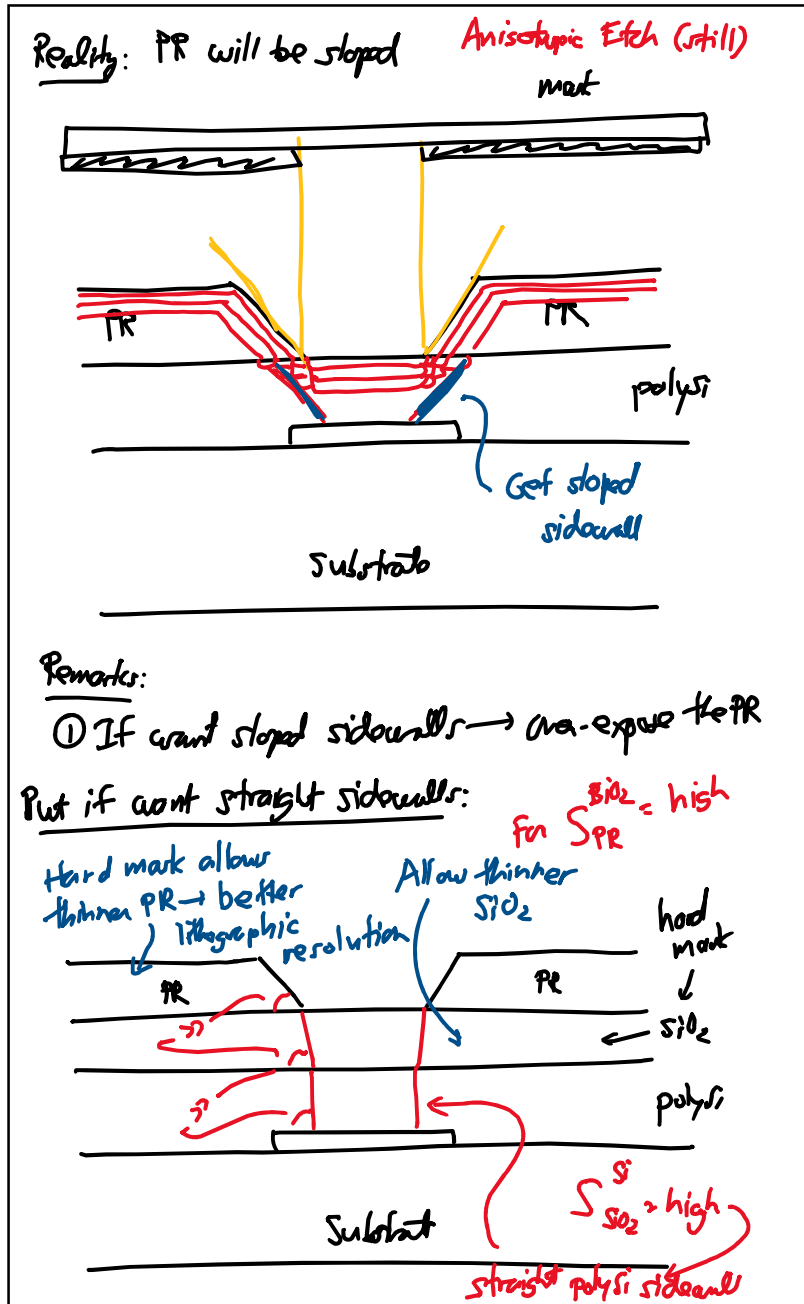 Reality: PR will be sloped
Anisotropic Etch (still)
mask
PR
PR
polysi
Get sloped
sidewall
Substrate
Remarks:
① If want sloped sidewalls → over-expose the PR
But if want straight sidewalls:
For S SiO2 PR = high
Hard mask allows
thinner PR → better
lithographic
resolution
Allow thinner
SiO2
hard
mask
PR
PR
SiO2
polysi
S Si SiO2 = high
Substrat
straight polysi sidewall